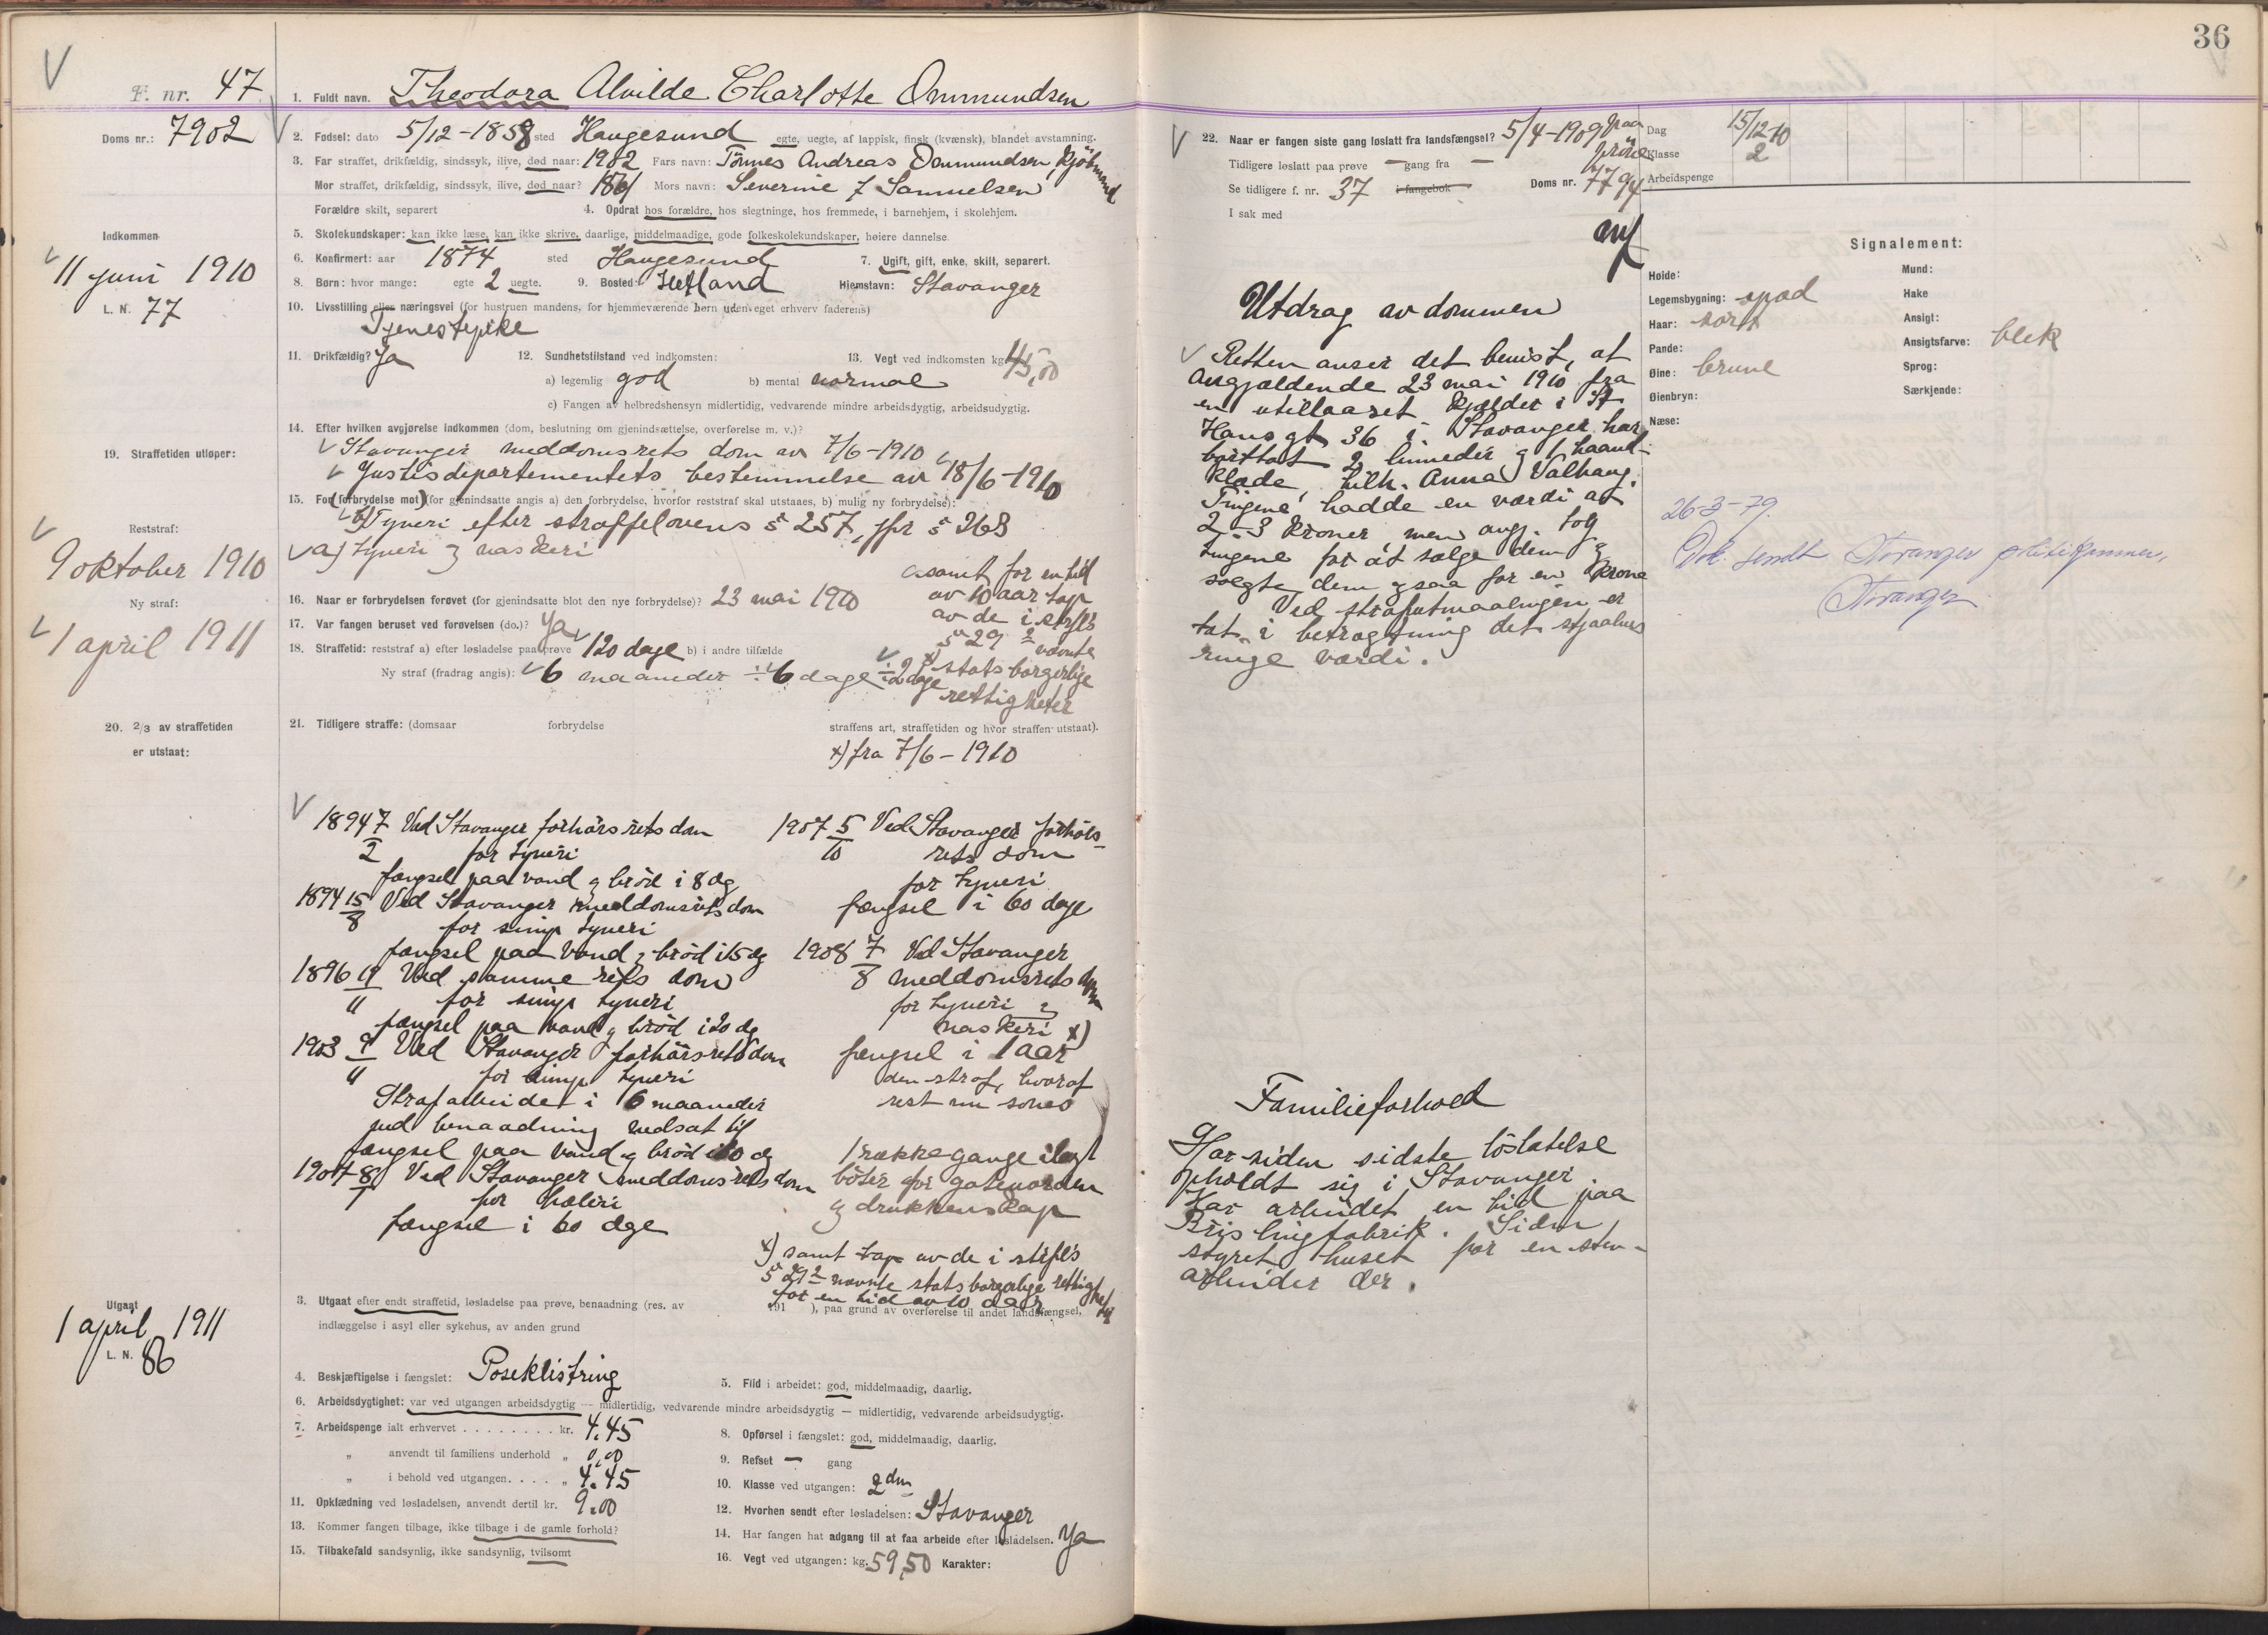 36
F. nr. 47
1. Fuldt navn. Theodora Alvilde Charlotte Ommundsen
Doms nr.: 7902
2. Fødsel: dato 5/12-1858 sted Haugesund egte, uegte, af lappisk, finsk (kvænsk), blandet avstamning.
3. Far straffet, drikfældig, sindssyk, ilive, død naar: 1902 Fars navn: Tönnes Andreas Ommundsen, Kjöbmand
Mor straffet, drikfældig, sindssyk, ilive, død naar? 1861 Mors navn: Severine f Samuelsen
Forældre skilt, separert 4. Opdrat hos forældre, hos slegtninge, hos fremmede, i barnehjem, i skolehjem.
5. Skolekundskaper: kan ikke læse, kan ikke skrive, daarlige, middelmaadige, gode folkeskolekundskaper, høiere dannelse.
6. Konfirmert: aar 1874 sted Haugesund 7. Ugift, gift, enke, skilt, separert.
8. Børn: hvor mange: egte 2 uegte. 9. Bosted: Hetland Hjemstavn: Stavanger
10. Livsstilling eller næringsvei (for hustruen mandens, for hjemmeværende børn uden eget erhverv faderens)
Tjenestepike
11. Drikfældig? Ja 12. Sundhetstilstand ved indkomsten: 13. Vegt ved indkomsten kg. 45,00
a) legemlig god b) mental normal
c) Fangen av helbredshensyn midlertidig, vedvarende mindre arbeidsdygtig, arbeidsudygtig.
Indkommen
11 juni 1910
L. N. 77
14. Efter hvilken avgjørelse indkommen (dom, beslutning om gjenindsættelse, overførelse m. v.)?
Stavanger meddomsrets dom av 7/6-1910
Justisdepartementets bestemmelse av 18/6-1910
15. For (forbrydelse mot) (for gjenindsatte angis a) den forbrydelse, hvorfor reststraf skal utstaaes, b) mulig ny forbrydelse):
b) Tyveri efter straffelovens § 257, jfr § 263
a) tyveri og naskeri
16. Naar er forbrydelsen forøvet (for gjenindsatte blot den nye forbrydelse)? 23 mai 1910
17. Var fangen beruset ved forøvelsen (do.)? Ja
18. Straffetid: reststraf a) efter løsladelse paa prøve 120 dage b) i andre tilfælde
Ny straf (fradrag angis): 6 maaneder ÷ 6 dage ÷ 2 dage
samt for en tid
av 10 aar tap
av de i strfls
§ 29 2 nævnte
x) statsborgerlige
rettigheter
19. Straffetiden utløper:
Reststraf:
9 oktober 1910
Ny straf:
1 april 1911
20. 2/3 av straffetiden
er utstaat:
21. Tidligere straffe: (domsaar forbrydelse straffens art, straffetiden og hvor straffen utstaat).
x) fra 7/6-1910
1894 7/2 Ved Stavanger forhörsrets dom
for tyveri
fængsel paa vand og bröd i 8 dg
1894 15/8 Ved Stavanger meddomsrets dom
for simp tyveri
fængsel paa vand og bröd i 15 dg
1896 Ved samme rets dom
for simp tyveri
fængsel paa vand og bröd i 20 dg
1903 9/11 Ved Stavanger forhörsrets dom
for simp tyveri
Strafarbeidet i 6 maaneder
ved benaadning nedsat til
fængsel paa vand og bröd i 20 dg
1904 8/1 Ved Stavanger meddomsrets dom
for hæleri
fængsel i 60 dge
1907 5/10 Ved Stavanger forhörs-
rets dom
for tyveri
fængsel i 60 dage
1908 7/8 Ved Stavanger
meddomsrets dom
for tyveri &
naskeri x)
fængsel i 1 aar
den straf, hvoraf
rest nu sones
1 række gange ilagt
böter for gateuorden
og drukkenskap
x) samt tap av de i strfl's
§ 29 2 nævnte statsborgerlige rettigheter
for en tid av 10 aar
Utgaat
1 april 1911
L. N. 86
3. Utgaat efter endt straffetid, løsladelse paa prøve, benaadning (res. av 191 ), paa grund av overførelse til andet landsfængsel,
indlæggelse i asyl eller sykehus, av anden grund
4. Beskjæftigelse i fængslet: Poseklistring 5. Flid i arbeidet: god, middelmaadig, daarlig.
6. Arbeidsdygtighet: var ved utgangen arbeidsdygtig — midlertidig, vedvarende mindre arbeidsdygtig — midlertidig, vedvarende arbeidsudygtig.
7. Arbeidspenge ialt erhvervet . . . . . . . . kr. 4.45 8. Opførsel i fængslet: god, middelmaadig, daarlig.
„ anvendt til familiens underhold „ 0,00 9. Refset — gang
„ i behold ved utgangen. . . . „ 4.45 10. Klasse ved utgangen: 2den
11. Opklædning ved løsladelsen, anvendt dertil kr. 9.00 12. Hvorhen sendt efter løsladelsen: Stavanger
13. Kommer fangen tilbage, ikke tilbage i de gamle forhold? 14. Har fangen hat adgang til at faa arbeide efter løsladelsen. Ja
15. Tilbakefald sandsynlig, ikke sandsynlig, tvilsomt 16. Vegt ved utgangen: kg. 59,50 Karakter:
22. Naar er fangen siste gang løslatt fra landsfængsel? 5/4-1909 paa prøve
Tidligere løslatt paa prøve — gang fra —
Se tidligere f. nr. 37 i fangebok Doms nr. 7794
I sak med
Dag 15/12 10
Klasse 2
Arbeidspenge
Utdrag av dommen
Retten anser det bevist, at
angjældende 23 mai 1910 fra
en utillaaset kjelder i St.
Hans gt 36 i Stavanger har
borttat 2 linneder og 1 haand-
klæde, tilh. Anna Valhaug.
Tingene hadde en værdi af
2-3 kroner, men angj. tog
tingene for at sælge dem og
solgte dem ogsaa for en krone
Ved strafutmaalingen er
tat i betragtning det stjaalnes
ringe værdi.
Signalement:
Høide: Mund:
Legemsbygning: spæd Hake
Haar: sort Ansigt:
Pande: Ansigtsfarve: blek
Øine: brune Sprog:
Øienbryn: Særkjende:
Næse:
26-3-79.
Dok. sendt Stavanger politikammer,
Stavanger
Familieforhold
Har siden sidste löslatelse
opholdt sig i Stavanger.
Har arbeidet en tid paa
Brislingfabrik. Siden
styret huset for en sten-
arbeider der.